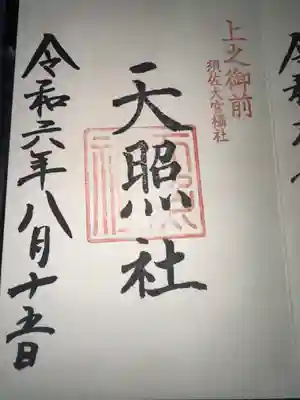 上之御前
須佐大宮摂社
天照社
令和六年八月十五日